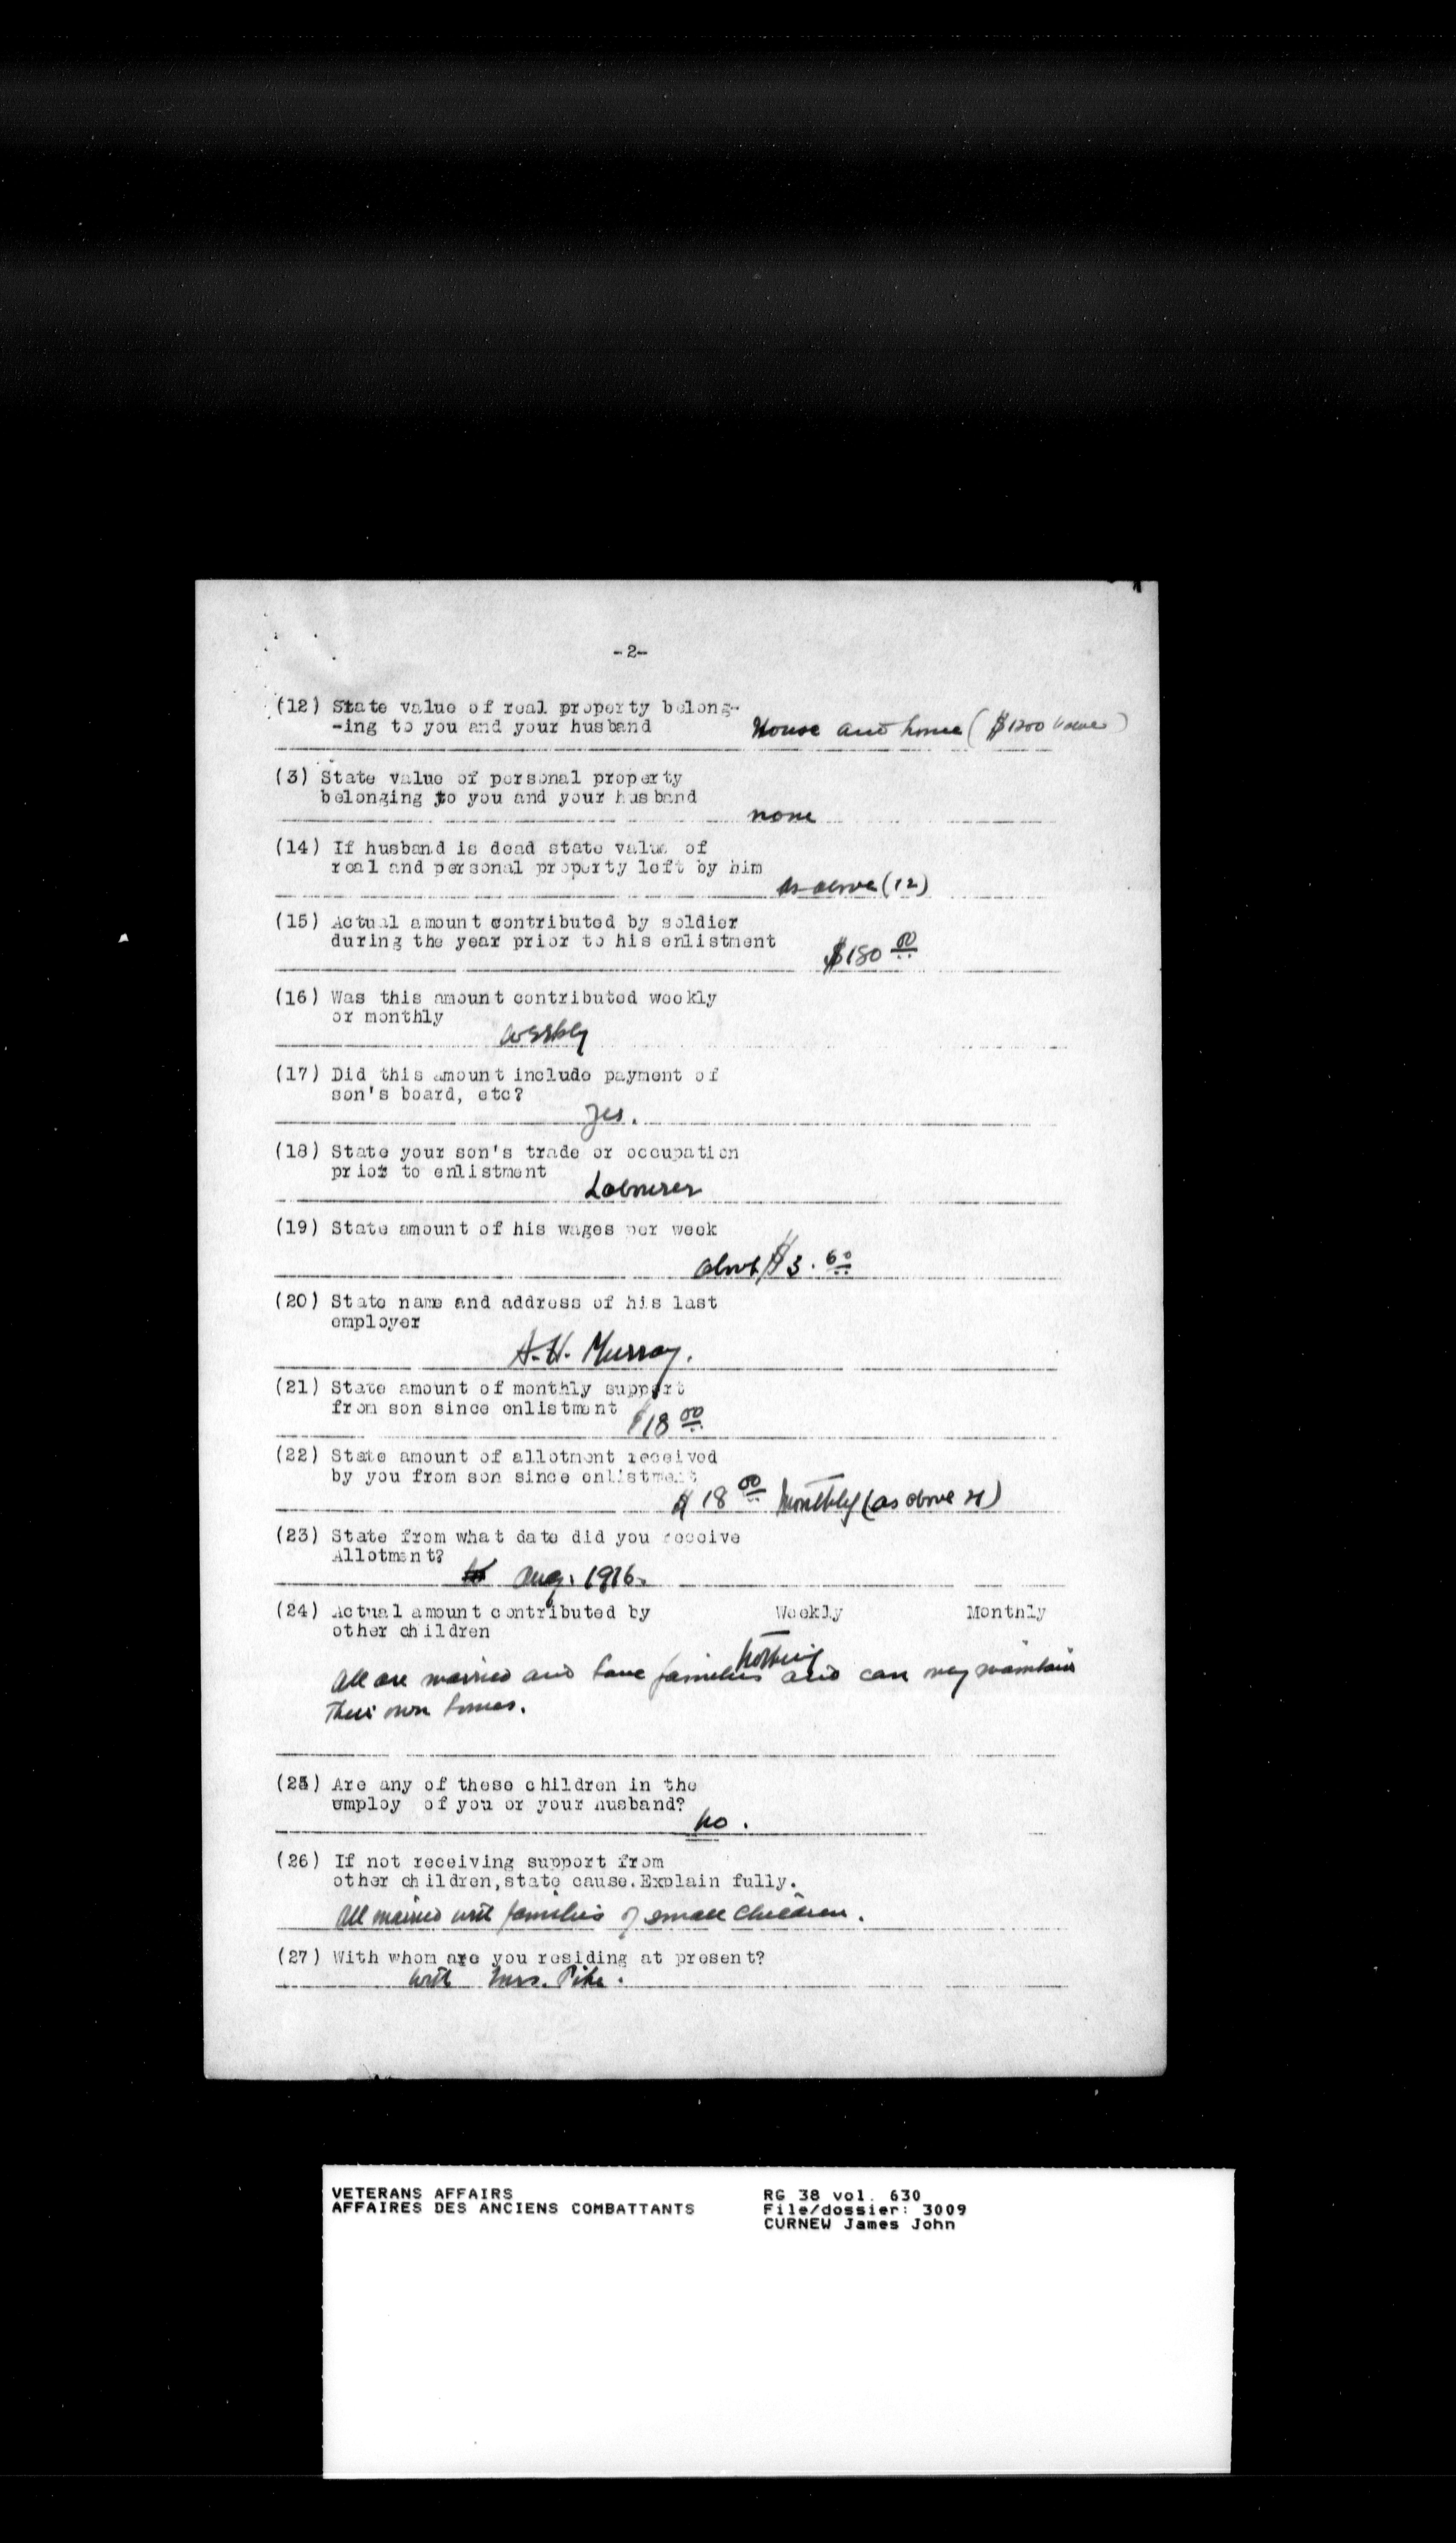 -2-
(12) State value of real property belong-
-ing to you and your husband House and home ($1200 value)
(3) State value of personal property
belonging to you and your husband
none
(14) If husband is dead state value of
real and personal property left by him
As above (12)
(15) Actual amount contributed by soldier
during the year prior to his enlistment $180 00
(16) Was this amount contributed weekly
or monthly
weekly
(17) Did this amount include payment of
son's board, etc?
Yes.
(18) State your son's trade or occupation
prior to enlistment
Labourer
(19) State amount of his wages per week
about $3. 60
(20) State name and address of his last
employer
A. H. Murray.
(21) State amount of monthly support
from son since enlistment $18 00
(22) State amount of allotment received
by you from son since enlistment
$18 00 monthly (as above 21)
(23) State from what date did you receive
Allotment?
Aug. 1916.
(24) Actual amount contributed by Weekly Monthly
other children
Nothing
All are married and have families and can only maintain
their own homes.
(25) Are any of these children in the
employ of you or your husband?
No.
(26) If not receiving support from
other children,state cause.Explain fully.
All married with families of small children.
(27) With whom are you residing at present?
with Mrs. Pike.
VETERANS AFFAIRS RG 38 vol. 630
AFFAIRES DES ANCIENS COMBATTANTS File/dossier: 3009
CURNEW James John